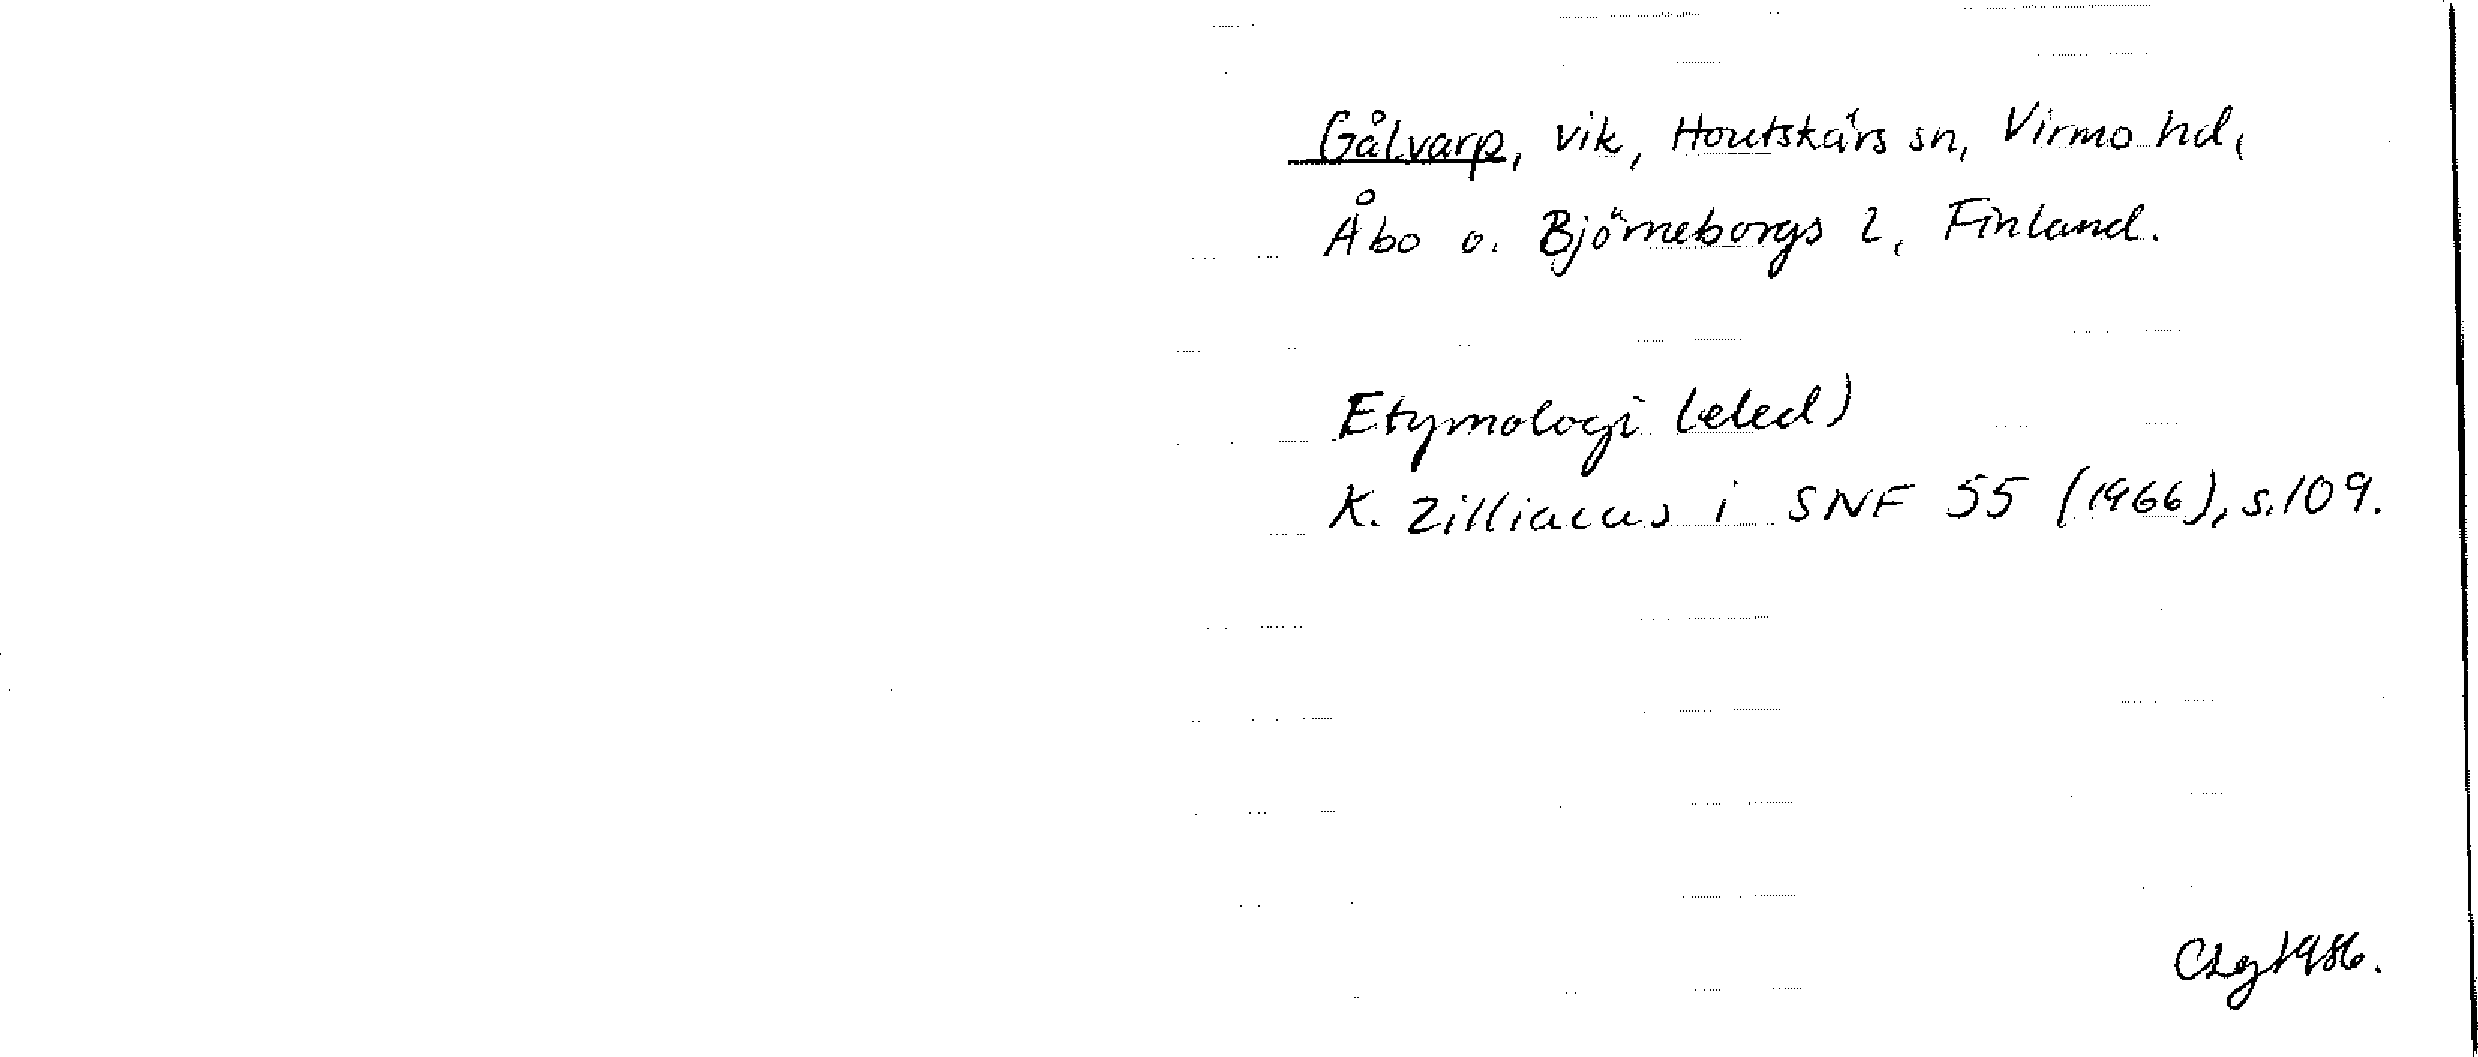 Gålvarp, vik, Houtskärs sn, Virmo hd,
Åbo o. Björneborgs l, Finland.
Etymologi (eled)
K. Zilliacus i SNF 55 (1966), s. 109.
CLg 1986.